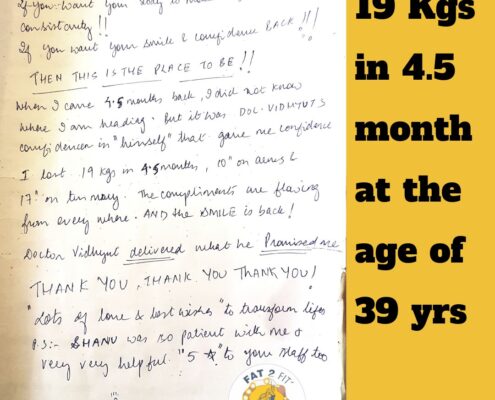 If you want your body to
consistancy !!
If you want your smile & confidence BACK !!!
THEN THIS IS THE PLACE TO BE !!
When I came 4.5 months back, I did not know
where I am heading. But it was DOC. VIDHYUT'S
confidence in "himself" that gave me confidence
I lost 19 kgs in 4.5 months, 10" on
17" on tummy. The compliments are flowing
from every where. AND the SMILE is back!
Doctor Vidhyut delivered what he Promised me
THANK YOU, THANK YOU THANK YOU!
"Lots of love & best wishes" to transform lifes
P.S:- BHANU was so patient with me &
very very helpful. "5 ☆" to your staff too
FAT 2 FIT
19 Kgs
in 4.5
month
at the
age of
39 yrs